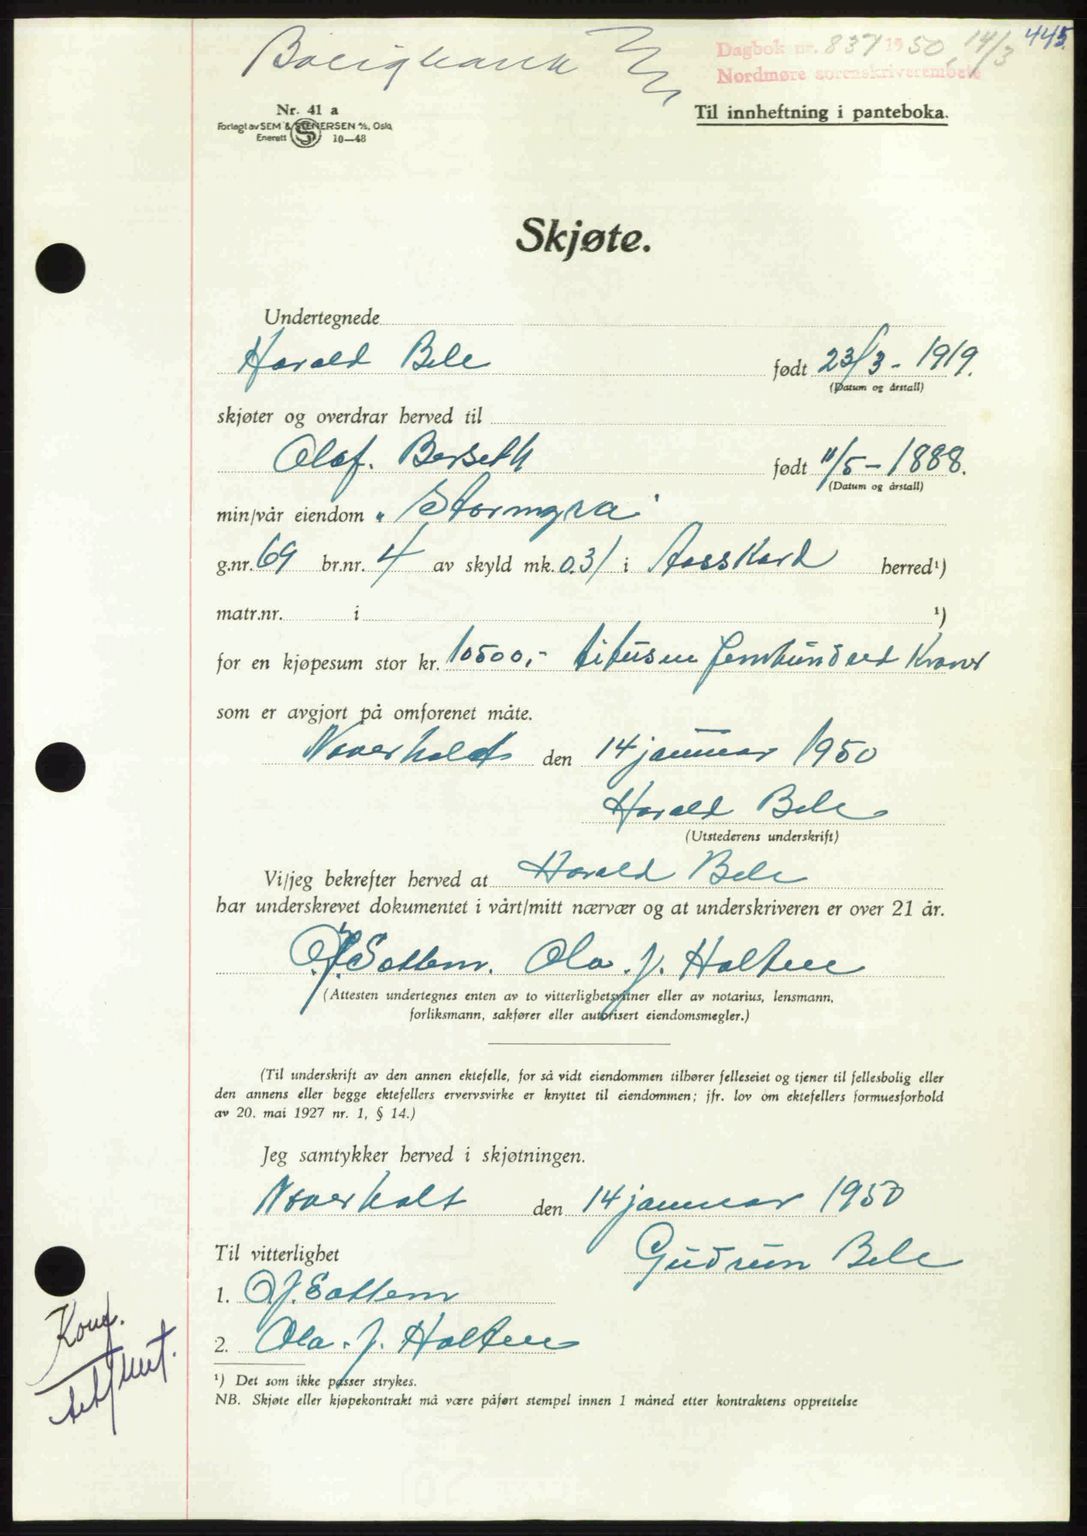 Boligbank
Dagbok nr. 837 1950, 14/3 445.
Nordmøre sorenskriverembete
Nr. 41 a
Forlagt av SEM & STENERSEN A/S, Oslo,
Enerett 10—48
Til innheftning i panteboka.
Skjøte.
Undertegnede
Harald Bele født 23/3 - 1919.
(Datum og årstall)
skjøter og overdrar herved til
Olaf. Berseth født 11/5 - 1888.
(Datum og årstall)
min/vår eiendom "Stormyra"
g.nr. 69 br.nr. 4 av skyld mk. 0.31 i Aasskard herred¹)
matr.nr. i ¹)
for en kjøpesum stor kr. 10500,- titusen femhundred Kroner
som er avgjort på omforenet måte.
den 14 januar 1950
Harald Bele
(Utstederens underskrift)
Vi/jeg bekrefter herved at Harald Bele
har underskrevet dokumentet i vårt/mitt nærvær og at underskriveren er over 21 år.
O.J. Sottem. Ola. J. Holten
(Attesten undertegnes enten av to vitterlighetsvitner eller av notarius, lensmann,
forliksmann, sakfører eller autorisert eiendomsmegler.)
(Til underskrift av den annen ektefelle, for så vidt eiendommen tilhører felleseiet og tjener til fellesbolig eller
den annens eller begge ektefellers ervervsvirke er knyttet til eiendommen; jfr. lov om ektefellers formuesforhold
av 20. mai 1927 nr. 1, § 14.)
Jeg samtykker herved i skjøtningen.
den 14 januar 1950
Til vitterlighet Gudrun Bele
1. O.J. Sottem
2. Ola. J. Holten
Konf.
¹) Det som ikke passer strykes.
NB. Skjøte eller kjøpekontrakt må være påført stempel innen 1 måned etter kontraktens opprettelse